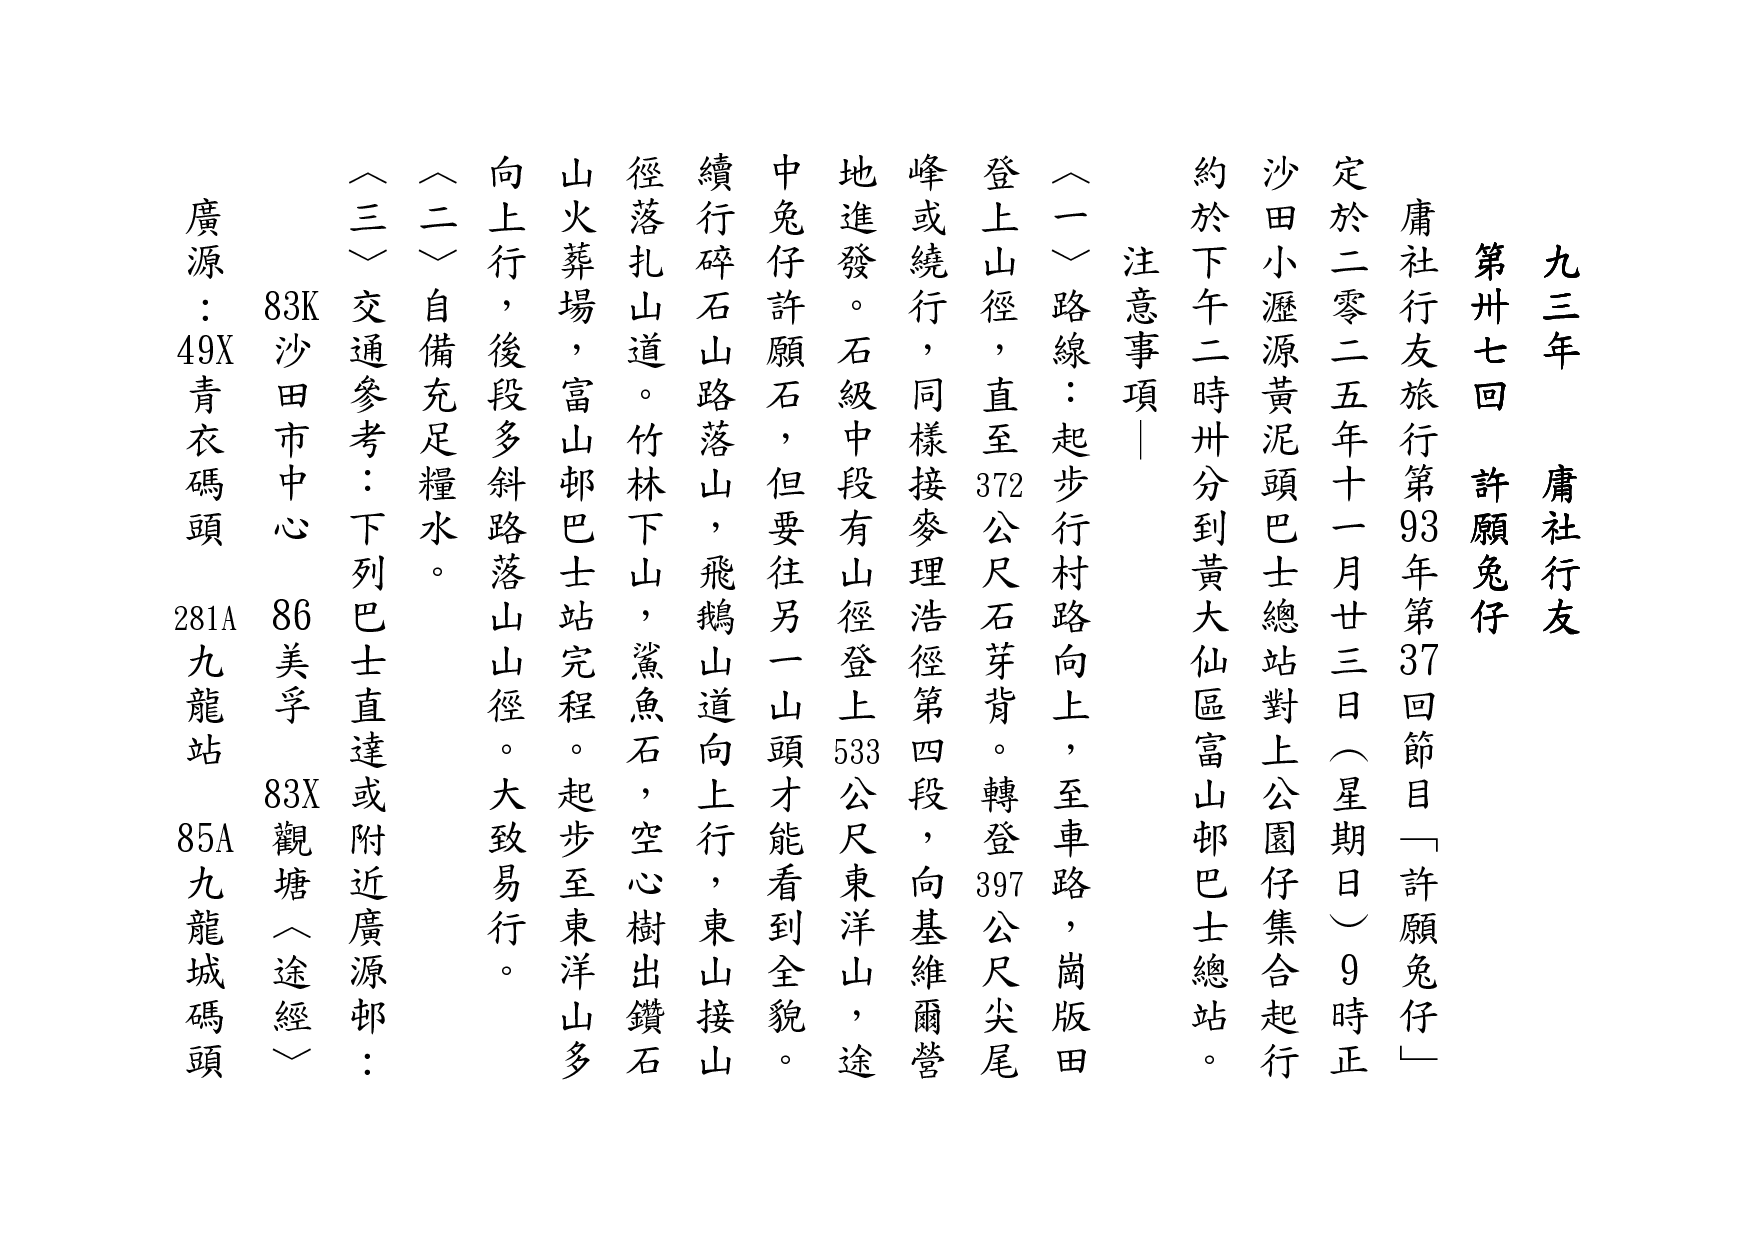 九三年　　庸社行友
第卅七回　許願兔仔
庸社行友旅行第93年第37回節目「許願兔仔」
定於二零二五年十一月廿三日（星期日）9時正
沙田小瀝源黃泥頭巴士總站對上公園仔集合起行
約於下午二時卅分到黃大仙區富山邨巴士總站。
注意事項—
〈一〉路線：起步行村路向上，至車路，崗版田
登上山徑，直至372公尺石芽背。轉登397公尺尖尾
峰或繞行，同樣接麥理浩徑第四段，向基維爾營
地進發。石級中段有山徑登上533公尺東洋山，途
中兔仔許願石，但要往另一山頭才能看到全貌。
續行碎石山路落山，飛鵝山道向上行，東山接山
徑落扎山道。竹林下山，鯊魚石，空心樹出鑽石
山火葬場，富山邨巴士站完程。起步至東洋山多
向上行，後段多斜路落山山徑。大致易行。
〈二〉自備充足糧水。
〈三〉交通參考：下列巴士直達或附近廣源邨：
83K沙田市中心　86美孚　83X觀塘〈途經〉
廣源：49X青衣碼頭　281A九龍站　85A九龍城碼頭